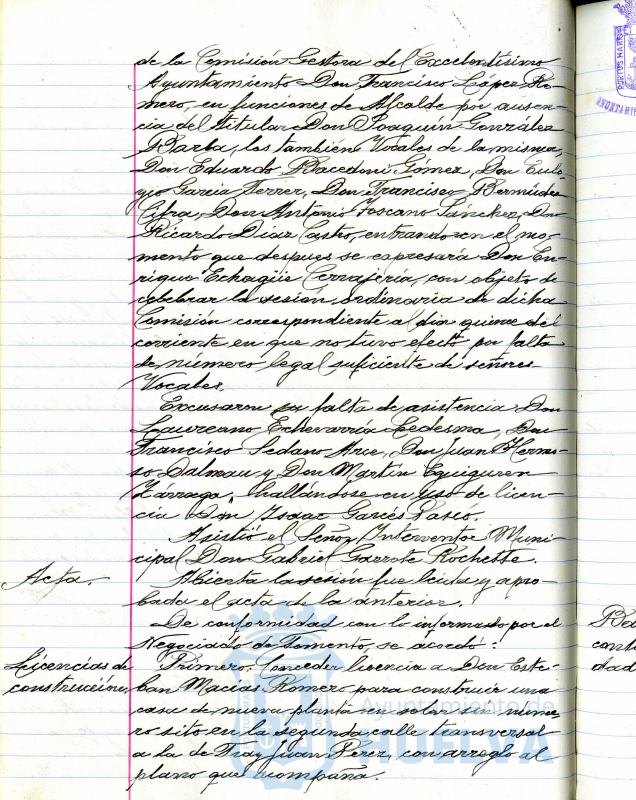 de la Comisión Gestora del Excelentísimo
Ayuntamiento Don Francisco López Ro-
mero, en funciones de Alcalde por ausen-
cia del titular Don Joaquín González
Barba, los también Vocales de la misma,
Don Eduardo Bacedoni Gómez, Don Eulo-
gio García Ferrer, Don Francisco Bermúdez
Cifra, Don Antonio Toscano Sánchez, Don
Ricardo Díaz Castro, entrando en el mo-
mento que despues se expresaría Don En-
rique Echagüe Cervajería, con objeto de
celebrar la sesión ordinaria de dicha
Comisión correspondiente al dia quince del
corriente en que no tuvo efecto por falta
de número legal suficiente de señores
Vocales.
Excusaron su falta de asistencia Don
Laureano Echevarría Ledesma, Don
Francisco Sedano Arce, Don Juan Hermo-
so Dalmau y Don Martín Eguiguren
Zárraga, hallándose en uso de licen-
cia Don Isaac Garcés Paseó.
Asistió el Señor Interventor Muni-
cipal Don Gabriel Garrote Rochette.
Acta. Abierta la sesión fue leida y apro-
bada el acta de la anterior.
De conformidad con lo informado por el
Negociado de Fomento, se acordó:
Licencias de Primero. Conceder licencia a Don Este-
construcciones ban Macías Romero para construir una
casa de nueva planta en solar sin nume-
ro sito en la segunda calle transversal
a la de Fray Juan Pérez, con arreglo al
plano que acompaña.
Ayuntamiento de
HUELVA
PORTUS MARIS